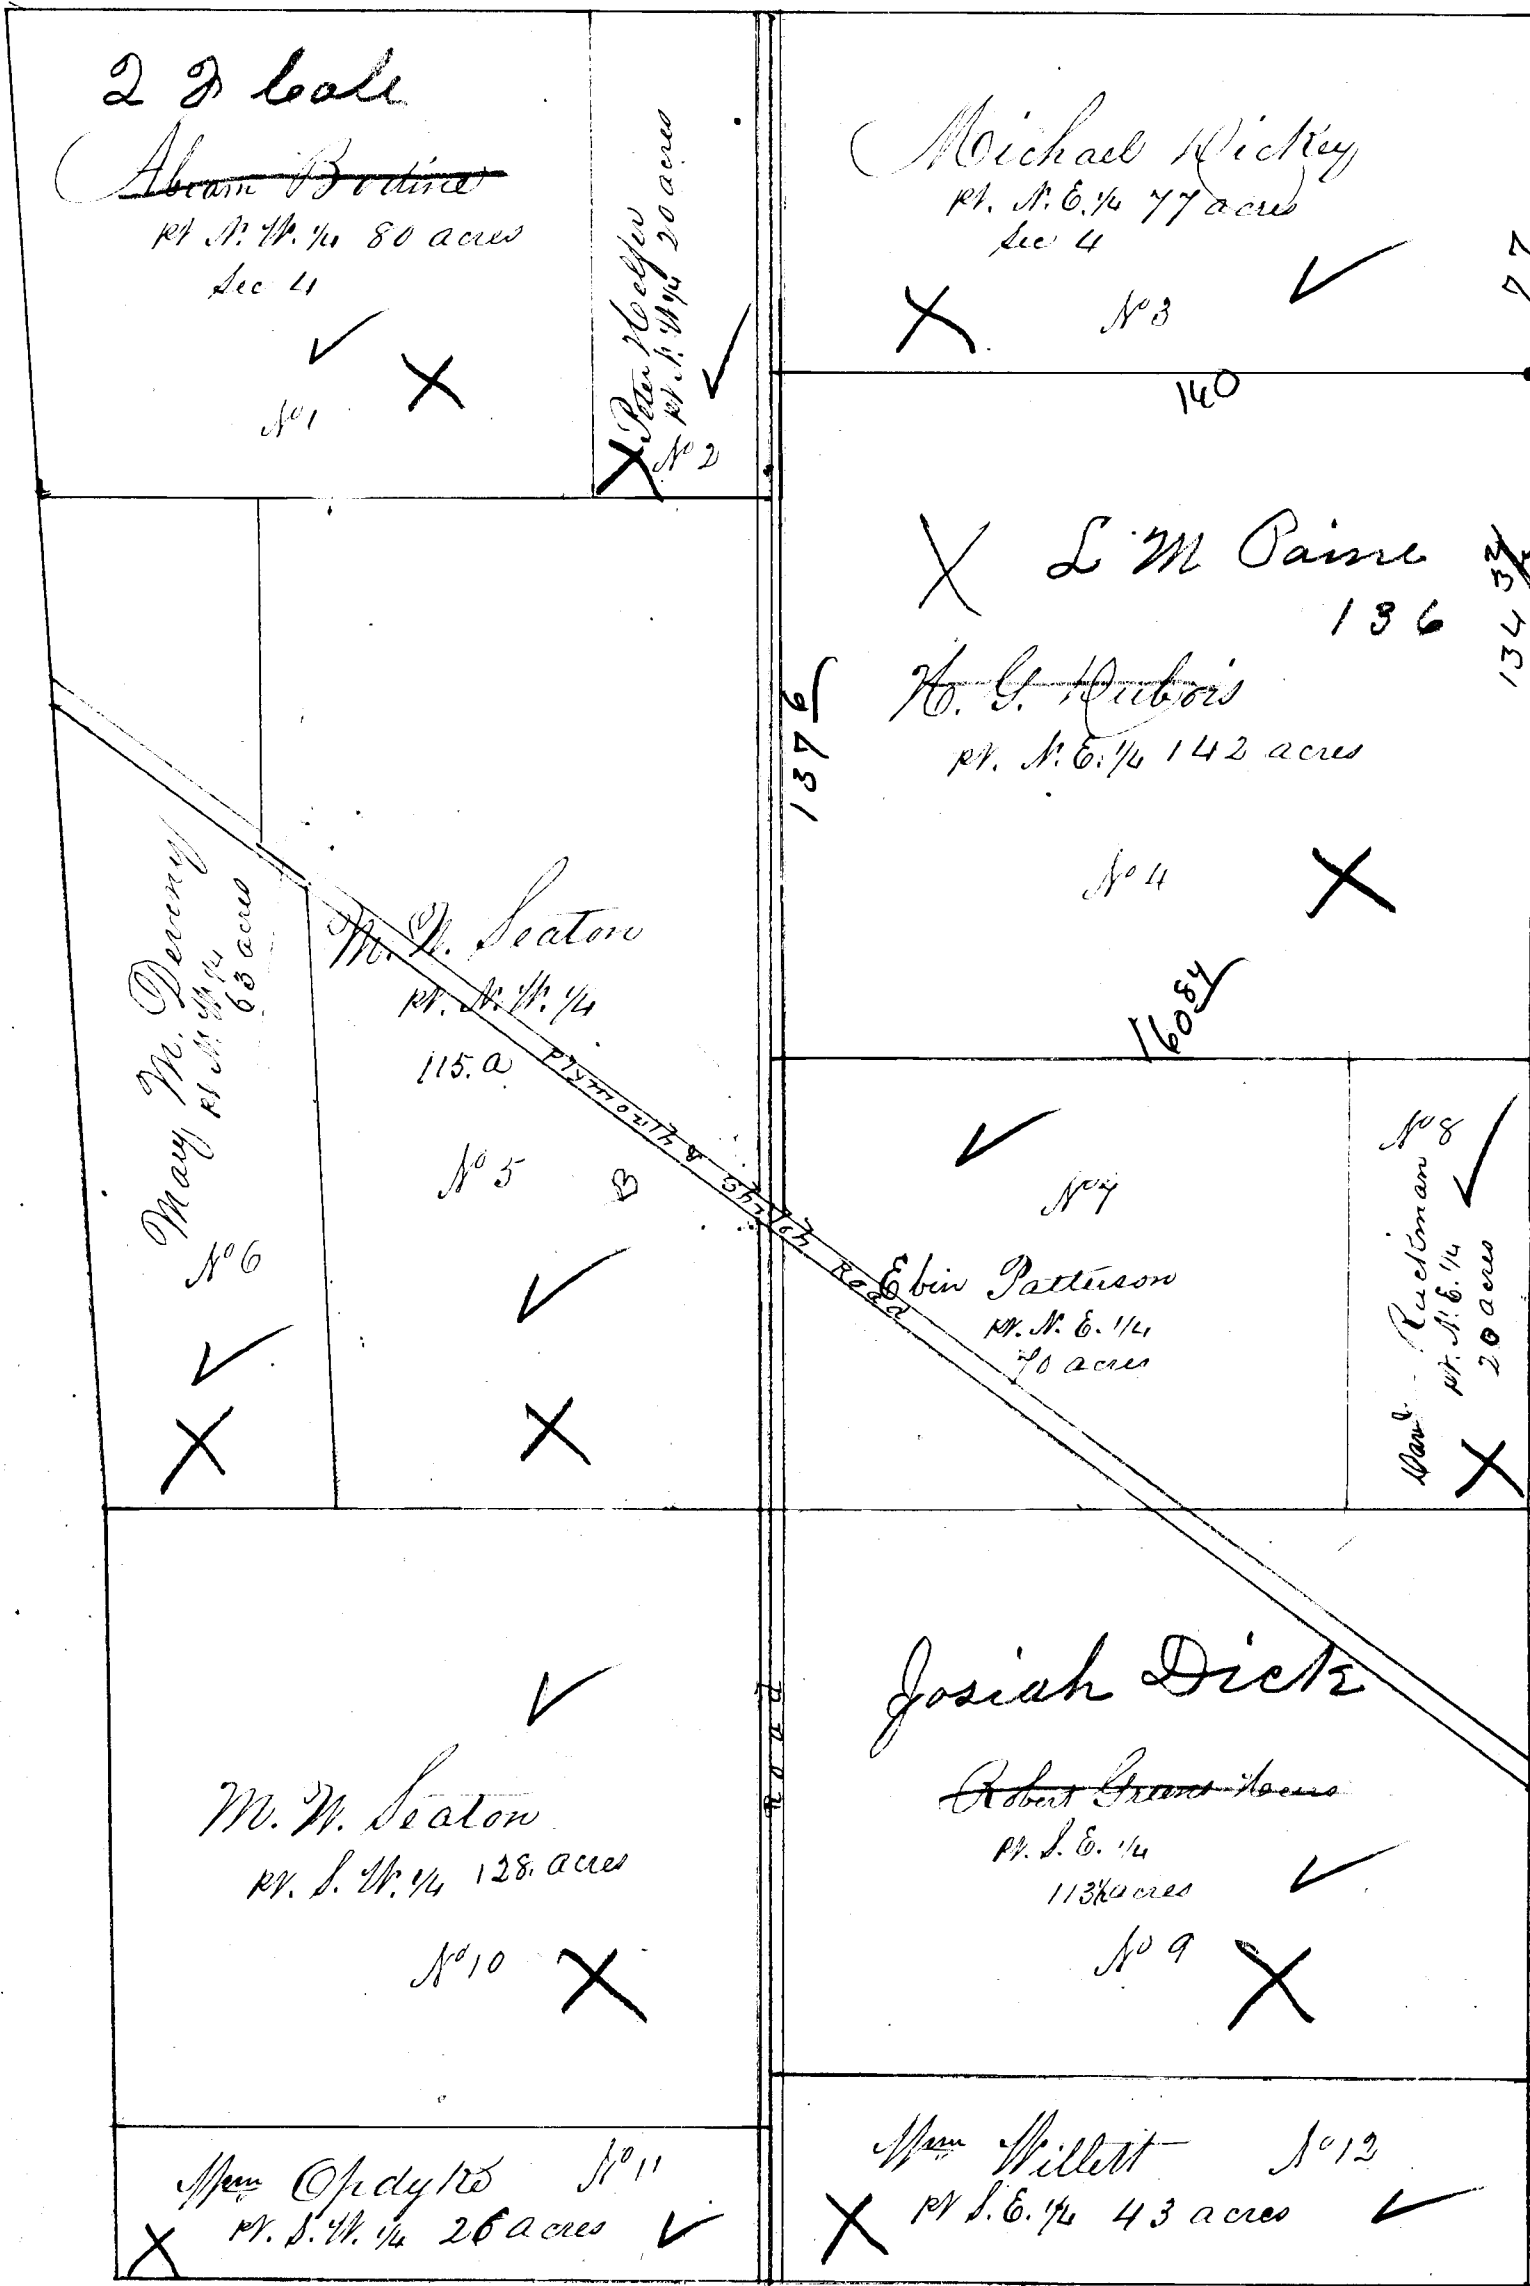 Cole
Abram Bodine
pt N. W. 1/4 80 acres
Sec 4
No 1
Peter Helfer
pt. N. W 1/4 20 acres
No 2
Michael Dickey
pt. N. E. 1/4 77 acres
Sec 4
No 3
77
140
L M Paine
136
H. G. Dubois
pt. N. E. 1/4 142 acres
No 4
137 6
134 32
160 84
Mary M. Deveny
pt N. W 1/4
63 acres
No 6
M. W. Seaton
pt. N. W. 1/4
115. a
No 5
B
Plymouth & Shiloh Road
No 7
Ebin Patterson
pt. N. E. 1/4
70 acres
No 8
Ruckman
pt. N. E. 1/4
20 acres
Josiah Dick
Robert
pt. S. E. 1/4
113 1/2 acres
No 9
Road
M. W. Seaton
pt. S. W. 1/4 128. acres
No 10
Wm Opdyke No 11
pt. S. W. 1/4 26 acres
Wm Willett No 12
pt S. E. 1/4 43 acres